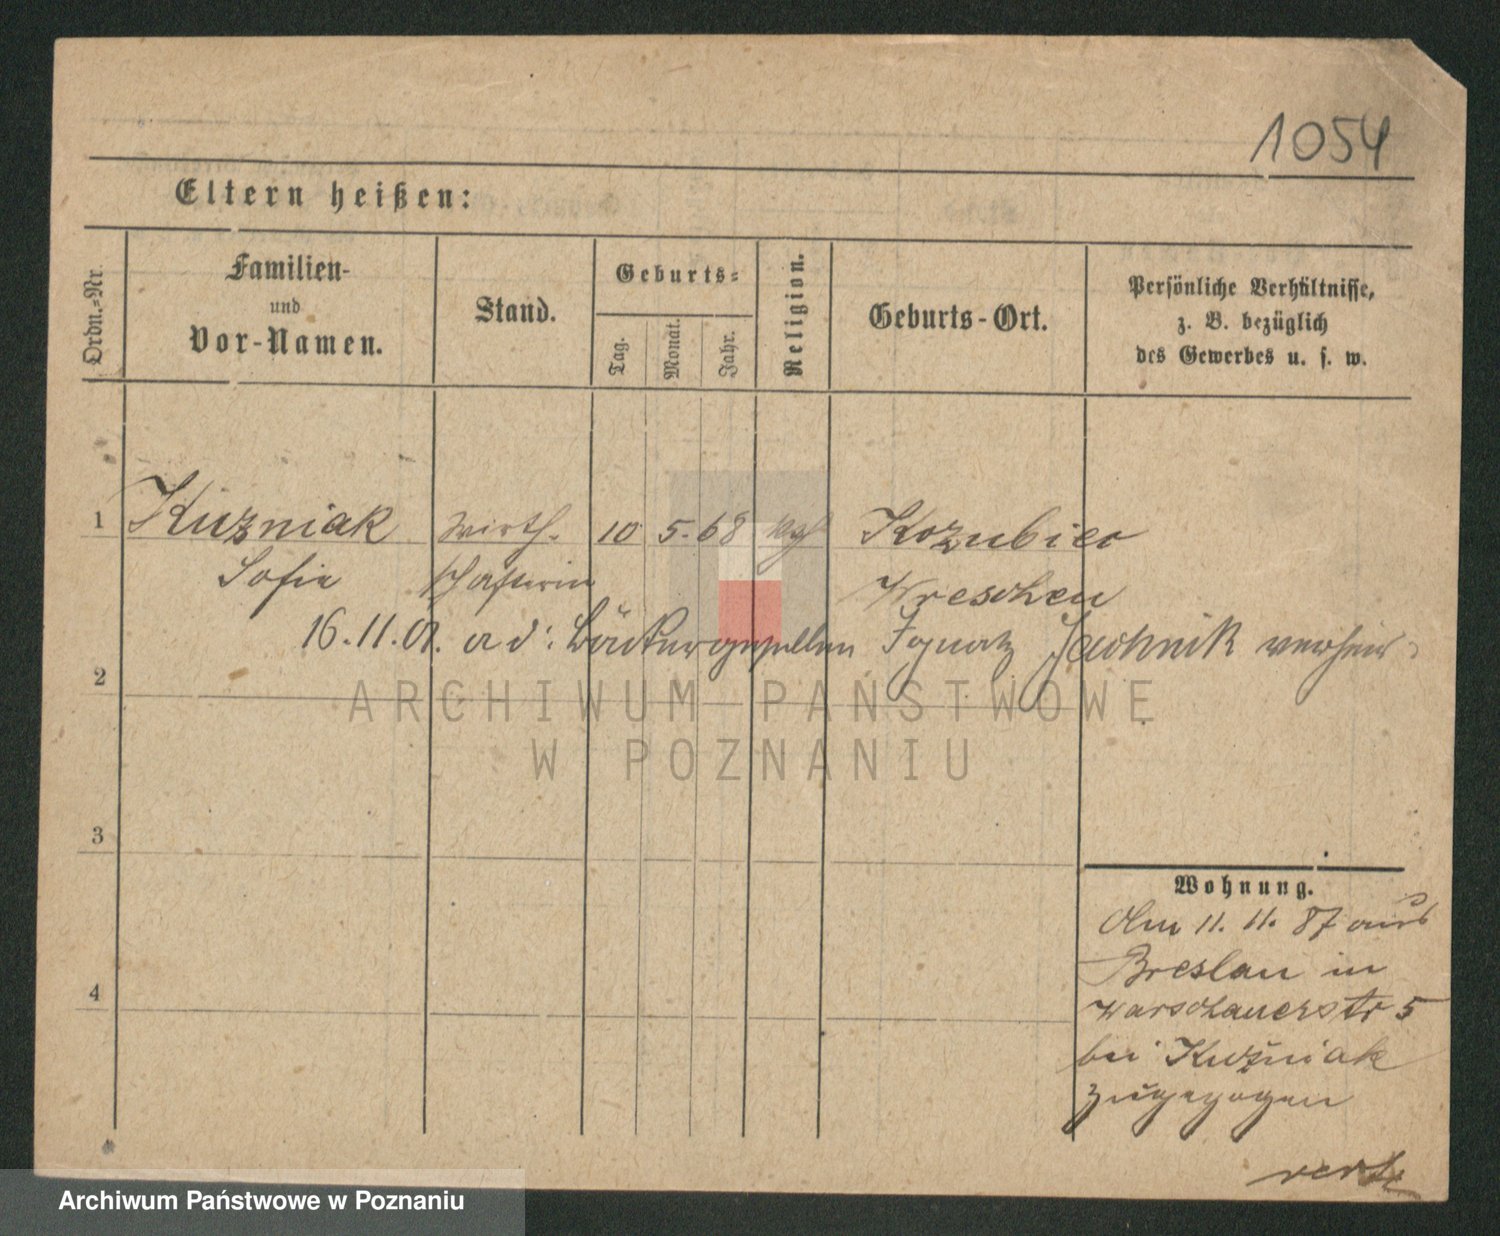 1054
Eltern heißen:
Ordn.-Nr.
Familien-
und
Vor-Namen.
Stand.
Geburts-
Tag.
Monat.
Jahr.
Religion.
Geburts-Ort.
Persönliche Verhältnisse,
z. B. bezüglich
des Gewerbes u. s. w.
1 Kuzniak Wirth- 10 5. 68 kath Kozubiec
Sofie schafterin Wreschen
16.11.01. a d. Bäckergesellen Ignatz Jachnik verheir.
2
ARCHIWUM PAŃSTWOWE
W POZNANIU
3
4
Wohnung.
Am 11. 11. 87 aus
Breslau in
Warschauerstr 5
bei Kuzniak
zugezogen
verte
Archiwum Państwowe w Poznaniu